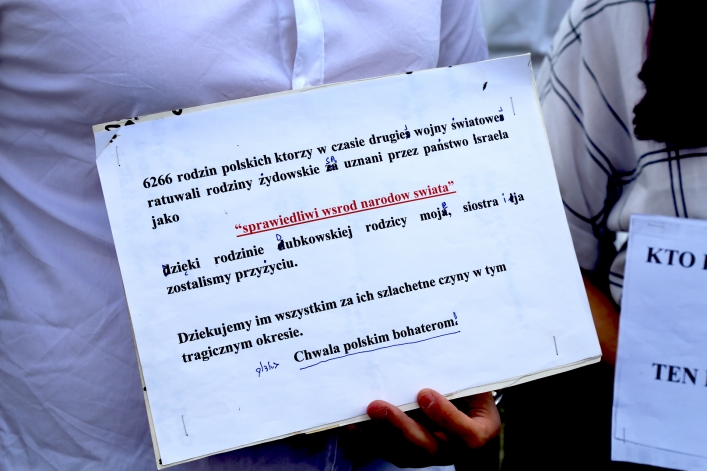 6266 rodzin polskich ktorzy w czasie drugiej wojny światowej
ratuwali rodziny żydowskie są uznani przez państwo Israela
jako
“sprawiedliwi wsrod narodow swiata”
dzięki rodzinie Dubkowskiej rodzicy moje, siostra i ja
zostalismy przyżyciu.
Dziekujemy im wszystkim za ich szlachetne czyny w tym
tragicznym okresie.
Chwala polskim bohaterom!
KTO
TEN